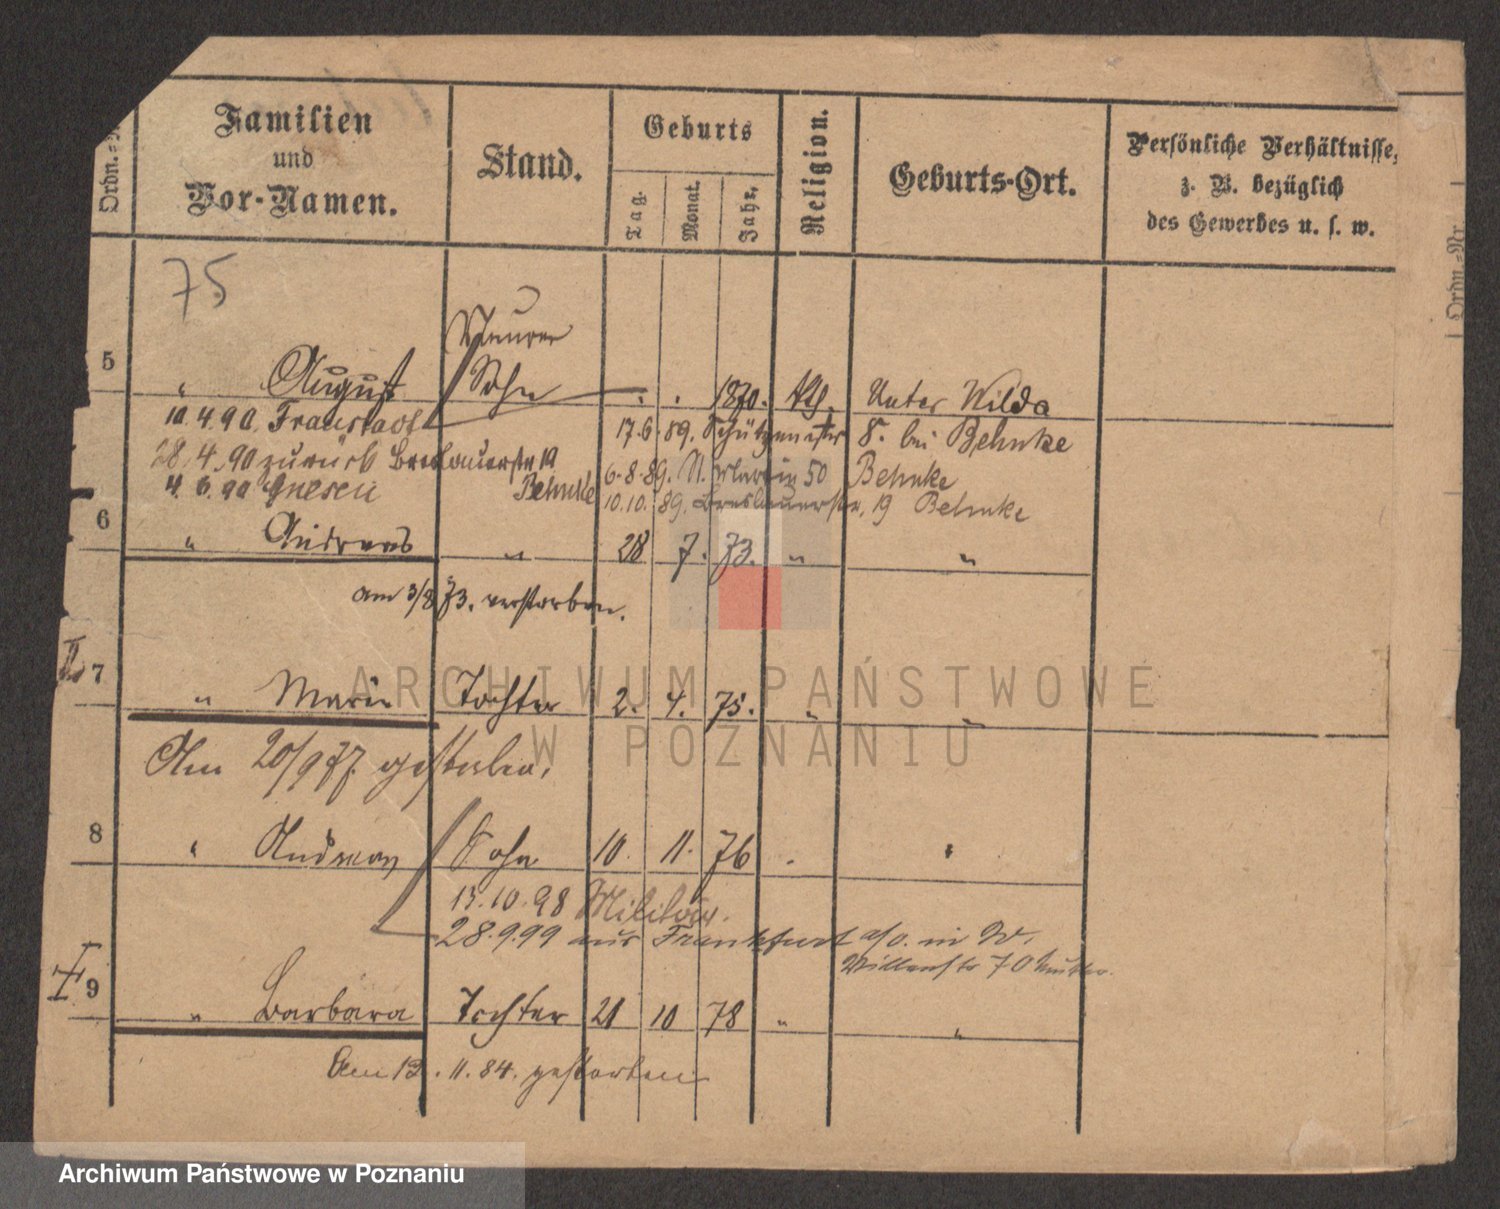 Ordn.-
Familien
und
Vor-Namen.
Stand.
Geburts
Tag.
Monat.
Jahr.
Religion.
Geburts-Ort.
Persönliche Verhältnisse,
z. B. bezüglich
des Gewerbes u. s. w.
Ordn.-Nr.
75
Maurer
5 " August Sohn . . 1870. Kth. Unter Wilda
10.4.90. Fraustadt
17.6.89. Schützenstr 8. bei Behnke
28.4.90 zurück Breslauerstr 19
Behnke
6.8.89. 50 Behnke
4.6.90 Gnesen
10.10.89. Breslauerstr. 19 Behnke
6 " Andreas " 28 7. 73. " "
am 3/8 73. verstorben.
II 7 " Marie Tochter 2. 4. 75. " "
Am 20/9 77. gestorben.
8 " Andreas Sohn 10. 11. 76 . "
13.10.98 Militär.
28.9.99 aus Frankfurt a/o. in W.
70 Mutter.
I 9 " Barbara Tochter 21 10 78 " "
Am 12.11.84. gestorben
ARCHIWUM PAŃSTWOWE
W POZNANIU
Archiwum Państwowe w Poznaniu